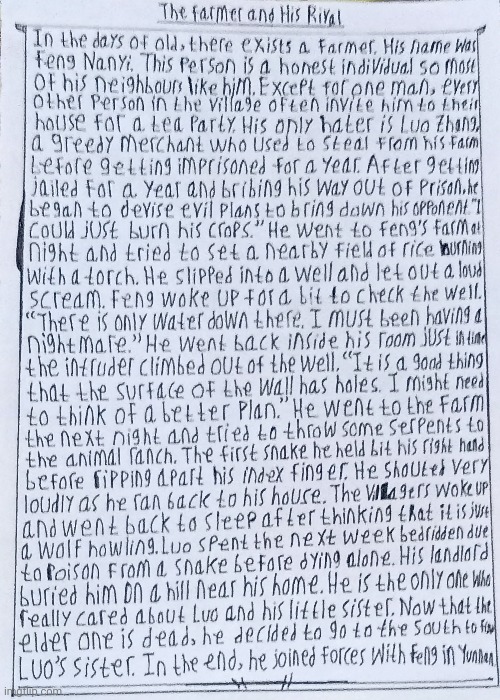 The Farmer and His Rival
In the days of old, there exists a farmer. His name was
Feng Nanyi. This person is a honest individual so most
of his neighbours like him. Except for one man, every
other person in the village often invite him to their
house for a tea party. His only hater is Luo Zhang,
a greedy merchant who used to steal from his farm
before getting imprisoned for a year. After getting
jailed for a year and bribing his way out of prison, he
began to devise evil plans to bring down his opponent. "I
could just burn his crops." He went to Feng's farm at
night and tried to set a nearby field of rice burning
with a torch. He slipped into a well and let out a loud
scream. Feng woke up for a bit to check the well.
"There is only water down there. I must been having a
nightmare." He went back inside his room just in time
the intruder climbed out of the well. "It is a good thing
that the surface of the wall has holes. I might need
to think of a better plan." He went to the farm
the next night and tried to throw some serpents to
the animal ranch. The first snake he held bit his right hand
before ripping apart his index finger. He shouted very
loudly as he ran back to his house. The villagers woke up
and went back to sleep after thinking that it is just
a wolf howling. Luo spent the next week bedridden due
to poison from a snake before dying alone. His landlord
buried him on a hill near his home. He is the only one who
really cared about Luo and his little sister. Now that the
elder one is dead, he decided to go to the south to find
Luo's sister. In the end, he joined forces with Feng in Yunnan
imgflip.com